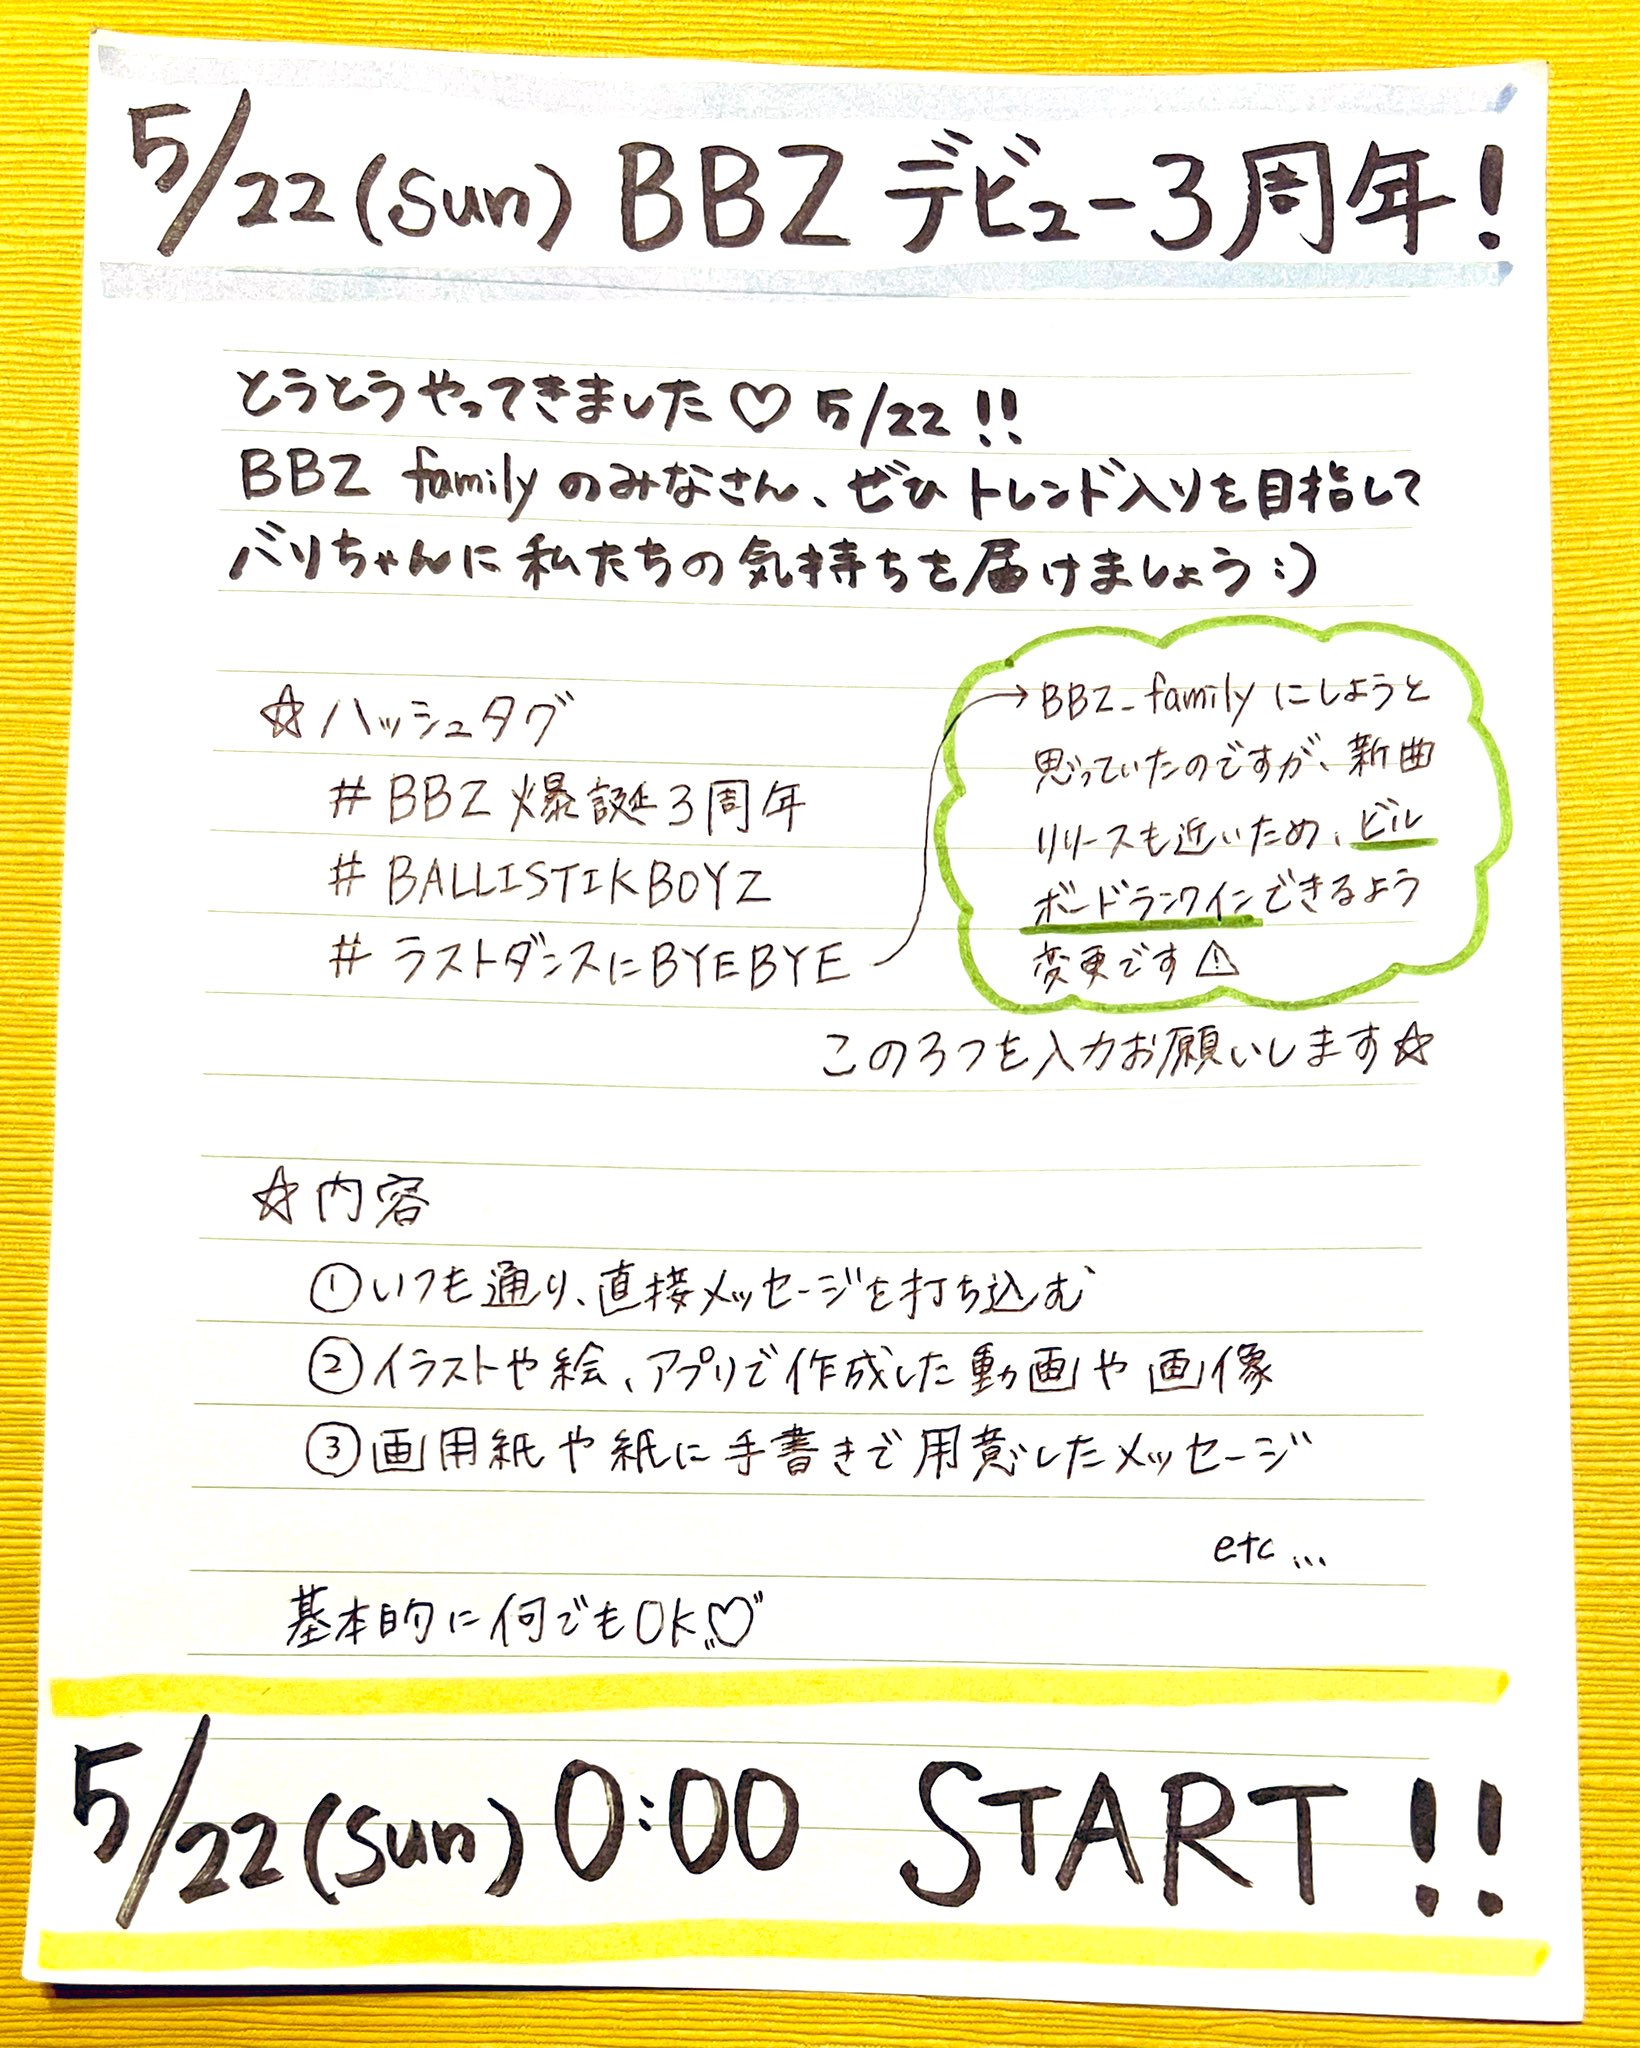 5/22(Sun) BBZ デビュー3周年!
とうとうやってきました♡ 5/22 !!
BBZ familyのみなさん、ぜひトレンド入りを目指して
バリちゃんに私たちの気持ちを届けましょう:)
☆ハッシュタグ
#BBZ爆誕3周年
#BALLISTIKBOYZ
#ラストダンスにBYEBYE
→BBZ_familyにしようと
思っていたのですが、新曲
リリースも近いため、ビル
ボードランクインできるよう
変更です⚠
この3つを入力お願いします☆
☆内容
①いつも通り、直接メッセージを打ち込む
②イラストや絵、アプリで作成した動画や画像
③画用紙や紙に手書きで用意したメッセージ
etc...
基本的に何でもOK♡
5/22(Sun) 0:00 START!!